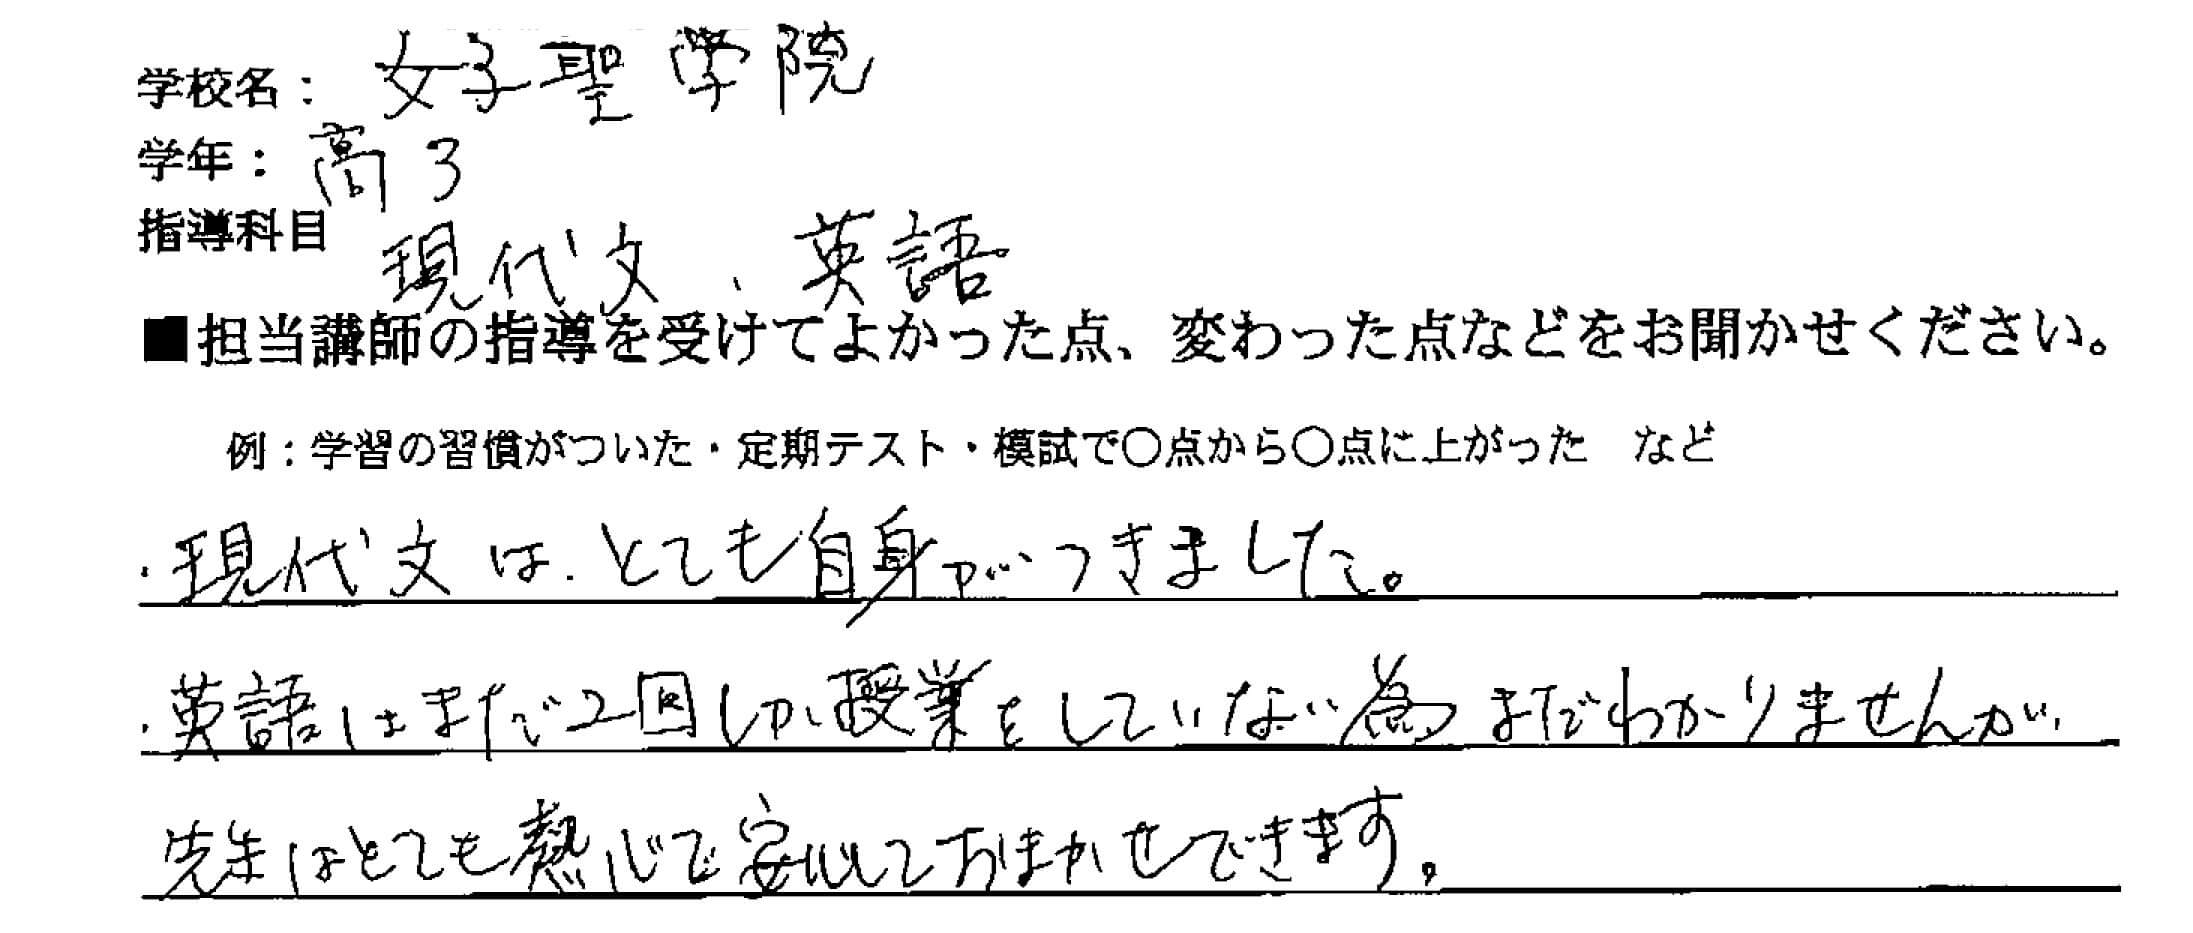 学校名: 女子聖学院
学年: 高3
指導科目 現代文、英語
■担当講師の指導を受けてよかった点、変わった点などをお聞かせください。
例:学習の習慣がついた・定期テスト・模試で〇点から〇点に上がった など
・現代文は、とても自身がつきました。
・英語はまだ2回しか授業をしていない為まだわかりませんが、
先生はとても熱心で安心しておまかせできます。